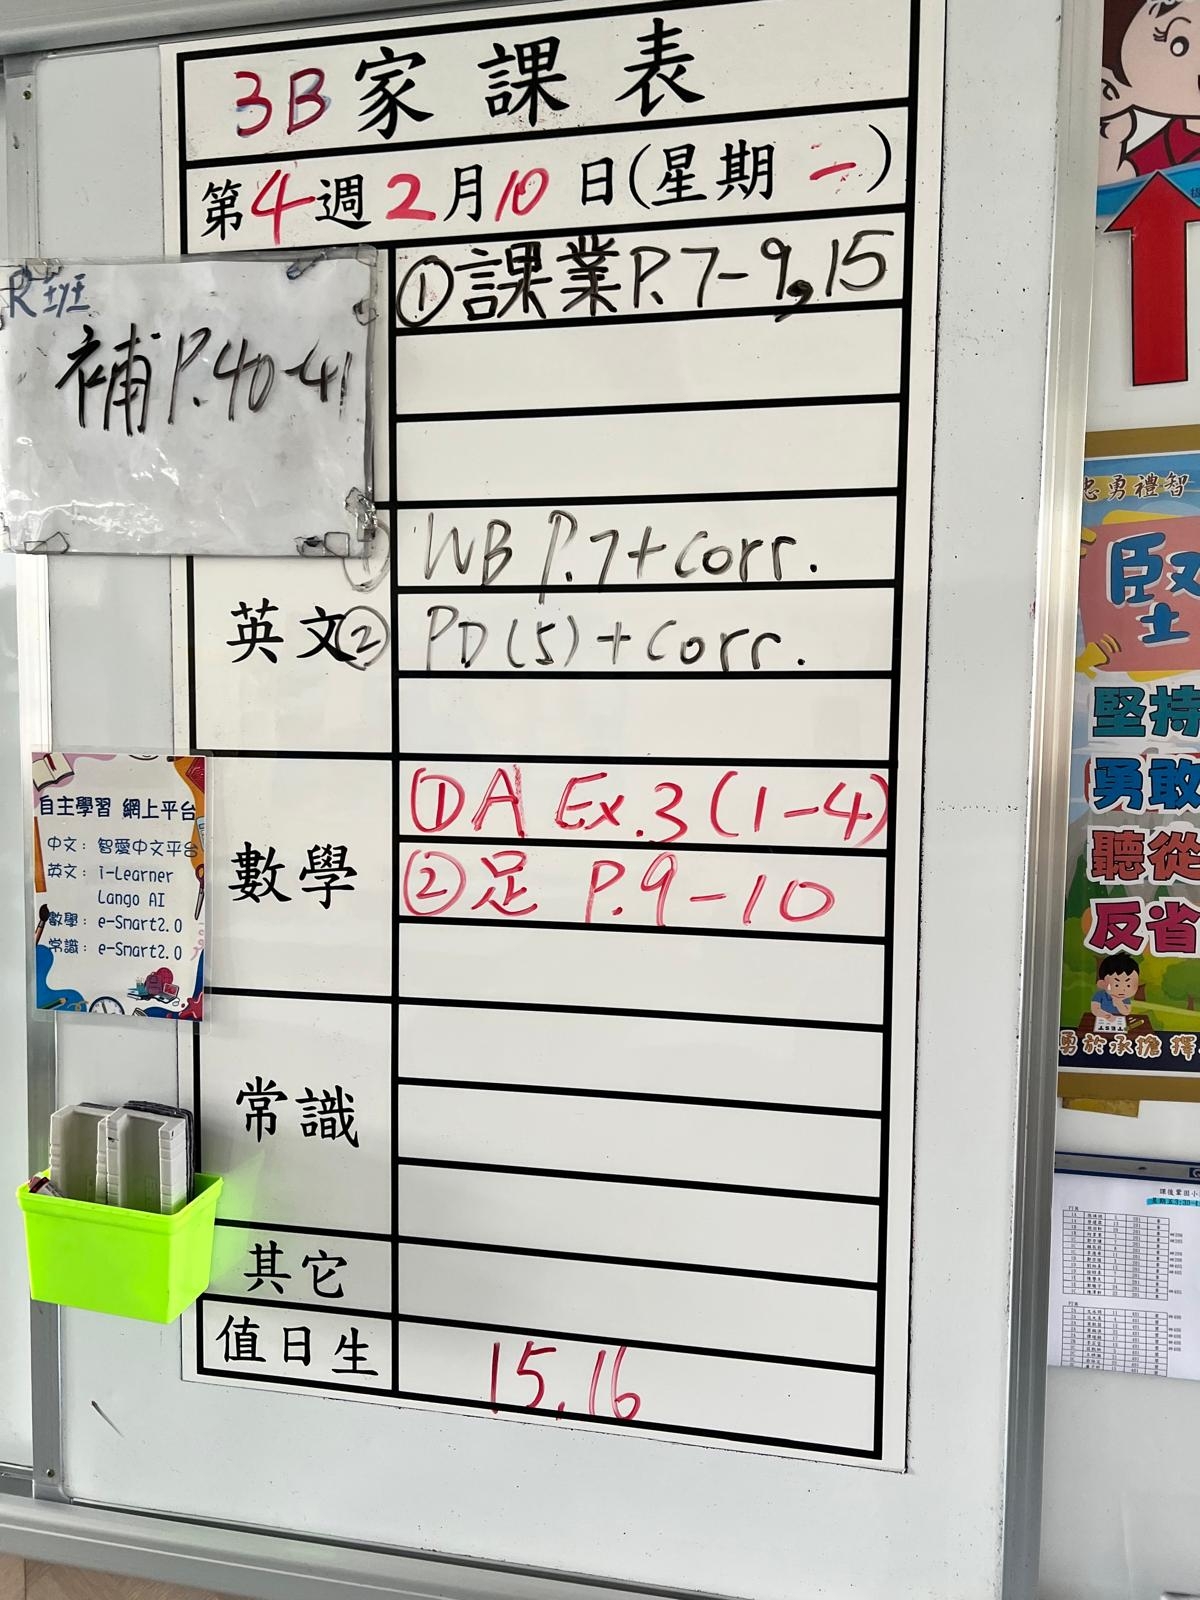 3B家課表
第4週2月10日(星期一)
①課業P.7-9,15
R班
補P.40-41
英文
① WB P.7+Corr.
② PD(5)+Corr.
數學
①A Ex.3(1-4)
②足 P.9-10
常識
其它
值日生
15,16
自主學習 網上平台
中文：智愛中文平台
英文：i-Learner
Lango AI
數學：e-Smart2.0
常識：e-Smart2.0
忠勇禮智
堅
堅持
勇敢
聽從
反省
勇於承擔 擇